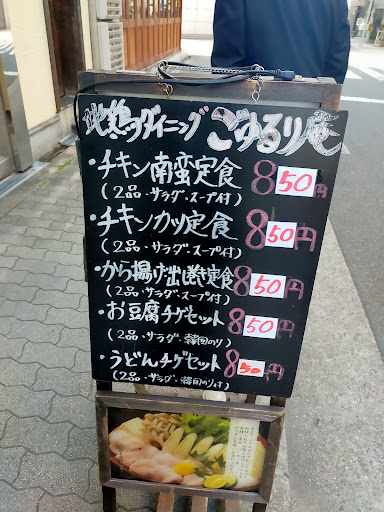 地鶏ダイニング ごゆるり庵
・チキン南蛮定食 850円
(2品・サラダ・スープ付)
・チキンカツ定食 850円
(2品・サラダ・スープ付)
・から揚げ出し巻き定食 850円
(2品・サラダ・スープ付)
・お豆腐チゲセット 850円
(2品・サラダ、韓国のり)
・うどんチゲセット 850円
(2品・サラダ、韓国のり付)